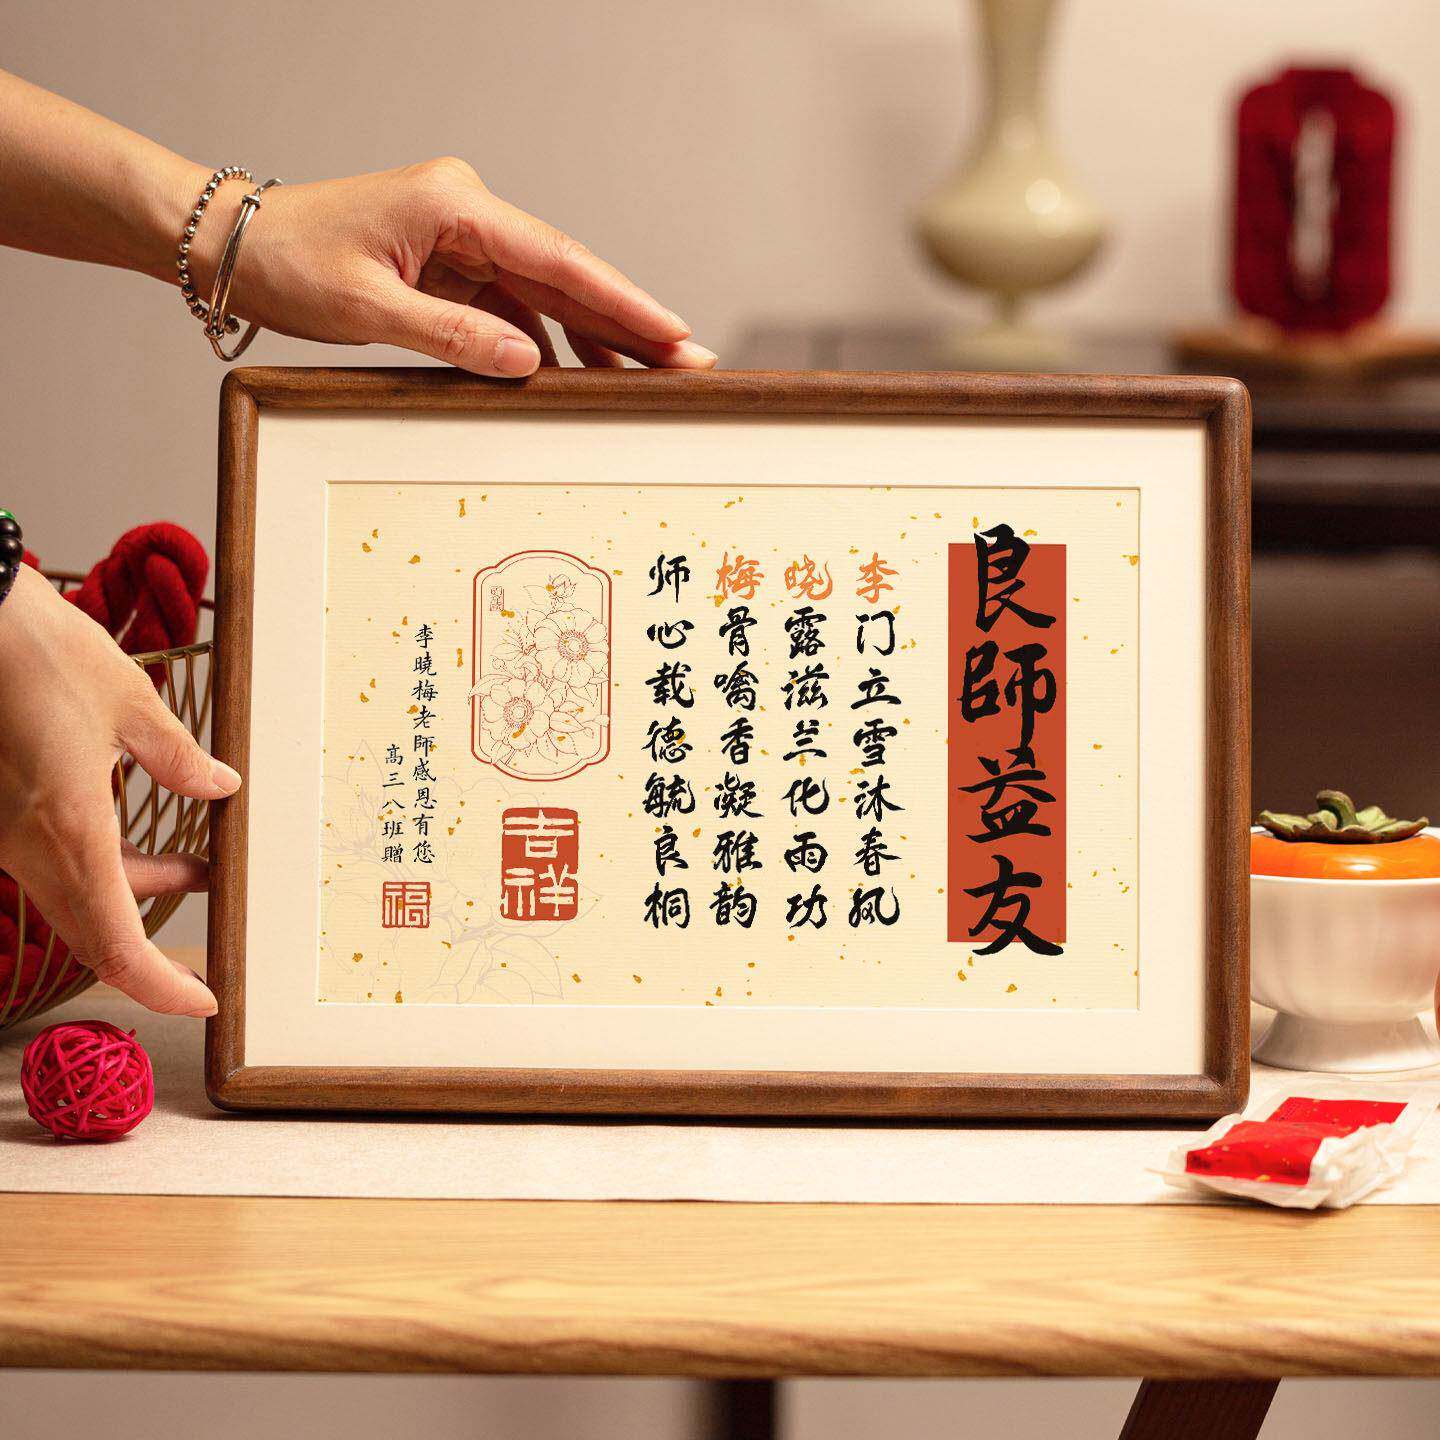 良師益友
李门立雪沐春风
晓露滋兰化雨功
梅骨噙香凝雅韵
师心载德毓良桐
吉祥
李曉梅老師感恩有您
高三八班贈
福